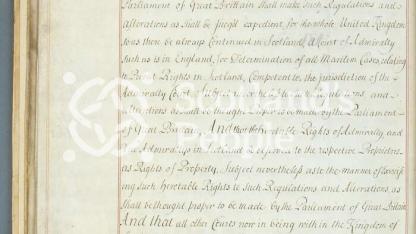 Parliament of Great Brittain shall make such Regulations and
alterations as shall be judged expedient, for the whole United Kingdom
so as there be always Continued in Scotland, a Court of Admiralty
Such as is in England, for Determination of all Maritim Cases relating
to Privat Rights in Scotland, Competent to the jurisdiction of the
Admiralty Court, Subject nevertheless to such Regulations and
alterations as shall be thought proper to be made by the Parliament
of Great Britain, And that the heretable Rights of Admiralty and
Vice Admiralties in Scotland be reserved to the respective Proprietors
as Rights of Property, Subject nevertheless as to the manner of Exercis
ing such Heretable Rights to Such Regulations and Alterations as
Shall be thought proper to be made by the Parliament of Great Britain
And that all other Courts now in being within the Kingdom of
scotland's